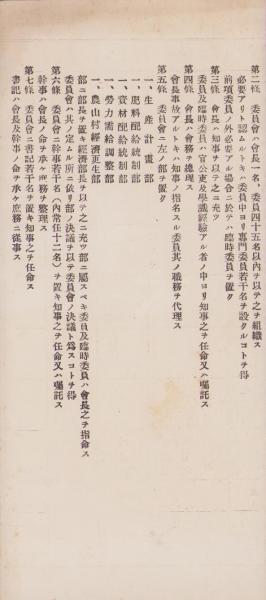 第二條　委員會ハ會長一名、委員四十五名以內ヲ以テ之ヲ組織ス
必要アリト認ムルトキハ委員中ヨリ專門委員若干名ヲ設クルコトヲ得
前項委員ノ外必要アル場合ニ於テハ臨時委員ヲ置ク
第三條　會長ハ知事ヲ以テ之ニ充ツ
委員及臨時委員ハ官公吏及學識經驗アル者ノ中ヨリ知事之ヲ任命又ハ囑託ス
第四條　會長ハ會務ヲ總理ス
會長事故アルトキハ知事ノ指名スル委員其ノ職務ヲ代理ス
第五條　委員會ニ左ノ部ヲ置ク
一、生產計畫部
一、肥料配給統制部
一、資材配給統制部
一、勞力需給調整部
一、農山村經濟更生部
部ニ部長ヲ置キ經濟部長ヲ以テ之ニ充ツ部ニ屬スベキ委員及臨時委員ハ會長之ヲ指命ス
委員會ハ其ノ定ムル所ニ依リ部ノ決議ヲ以テ委員會ノ決議ト爲スコトヲ得
第六條　委員會ニ幹事若干名（內常任十二名）ヲ置キ知事之ヲ任命又ハ囑託ス
幹事ハ會長ノ命ヲ承ケ庶務ヲ整理ス
第七條　委員會ニ書記若干名ヲ置キ知事之ヲ任命ス
書記ハ會長及幹事ノ命ヲ承ケ庶務ニ從事ス